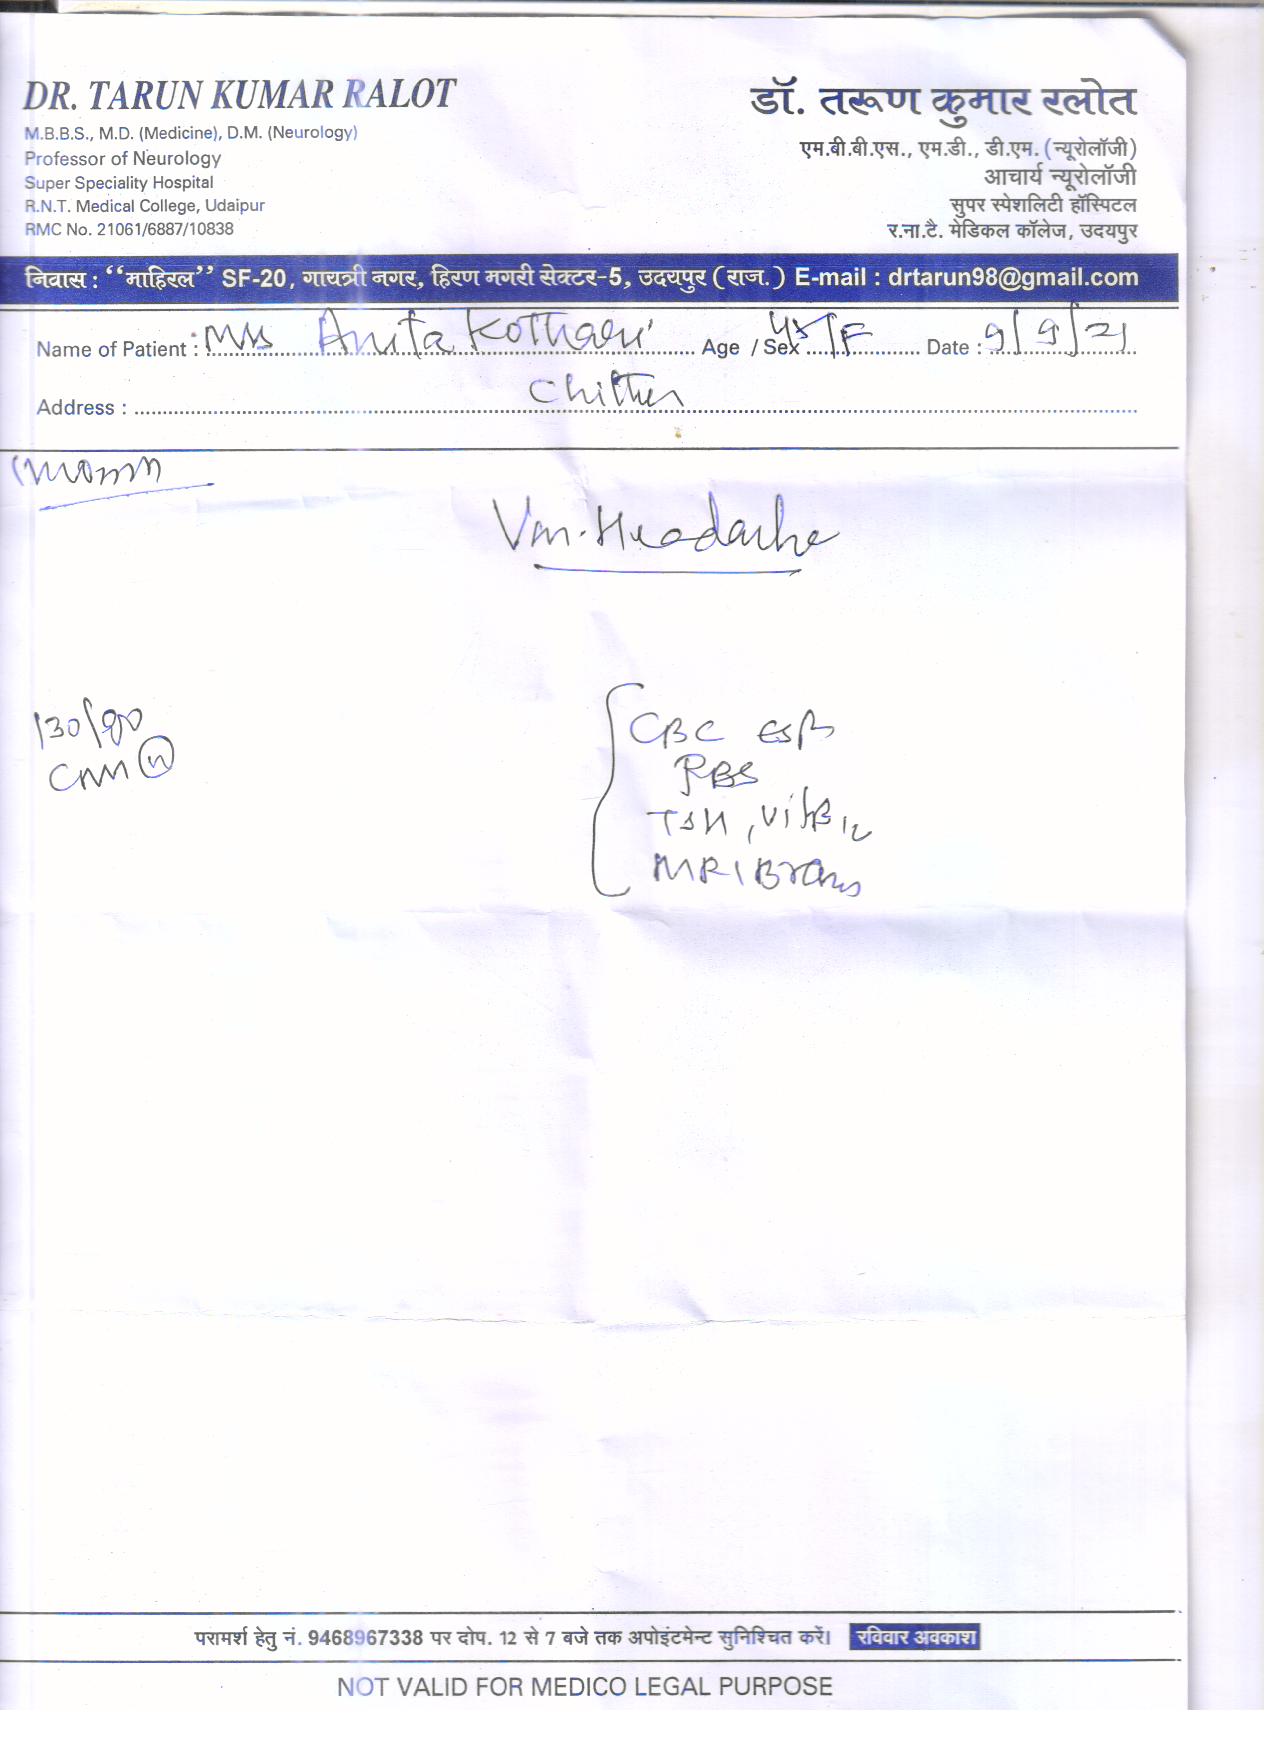 DR. TARUN KUMAR RALOT
M.B.B.S., M.D. (Medicine), D.M. (Neurology)
Professor of Neurology
Super Speciality Hospital
R.N.T. Medical College, Udaipur
RMC No. 21061/6887/10838
डॉ. तरूण कुमार रलोत
एम.बी.बी.एस., एम.डी., डी.एम. (न्यूरोलॉजी)
आचार्य न्यूरोलॉजी
सुपर स्पेशलिटी हॉस्पिटल
र.ना.टै. मेडिकल कॉलेज, उदयपुर
निवास : "माहिरल" SF-20, गायत्री नगर, हिरण मगरी सेक्टर-5, उदयपुर (राज.) E-mail : drtarun98@gmail.com
Name of Patient : Mrs Anita Kothari Age / Sex F Date : 9/9/21
Address :
Headache
130/90
CBC ESR
RBS
TSH, Vit B12
MRI Brain
परामर्श हेतु नं. 9468967338 पर दोप. 12 से 7 बजे तक अपोइंटमेन्ट सुनिश्चित करें। रविवार अवकाश
NOT VALID FOR MEDICO LEGAL PURPOSE